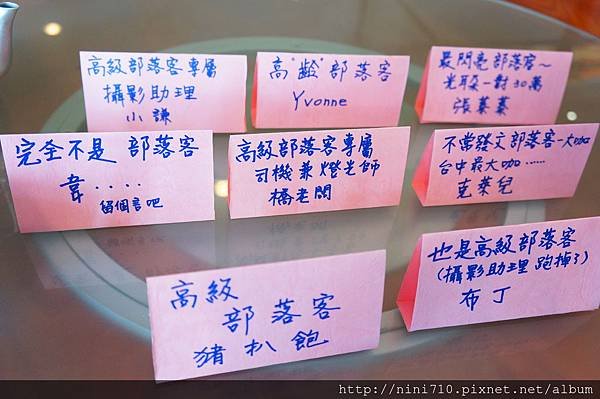 高級部落客專屬
攝影助理
小謙
高"齡"部落客
Yvonne
最閃亮部落客～
光頭一對30萬
張蓁蓁
完全不是 部落客
韋....
留個言吧
高級部落客專屬
司機兼燈光師
橘老闆
不常發文部落客-大咖
台中最大咖......
克萊兒
高級
部落客
豬扒飽
也是高級部落客
(攝影助理 跑掉了)
布丁
http://nini710.pixnet.net/album